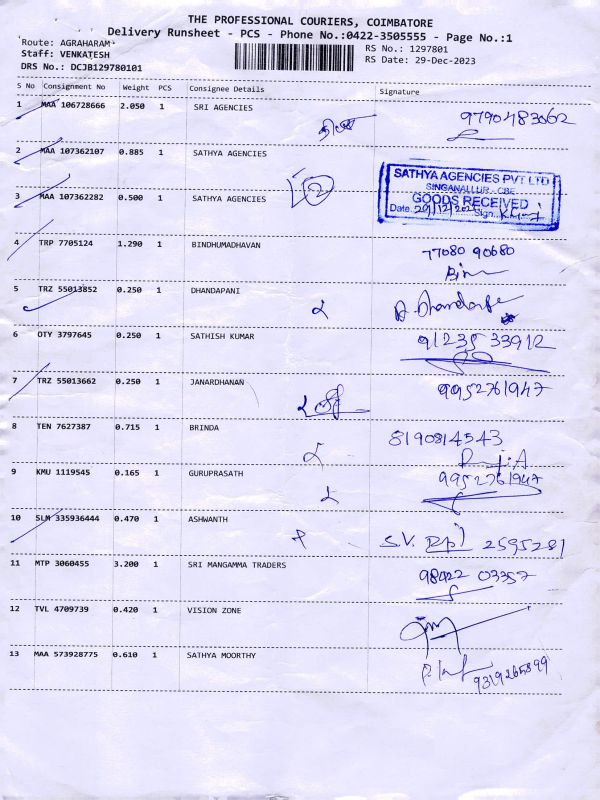 THE PROFESSIONAL COURIERS, COIMBATORE
Delivery Runsheet - PCS - Phone No.:0422-3505555 - Page No.:1
Route: AGRAHARAM
Staff: VENKATESH
DRS No.: DCJB129780101
RS No.: 1297801
RS Date: 29-Dec-2023
S No Consignment No Weight PCS Consignee Details Signature
1 MAA 106728666 2.050 1 SRI AGENCIES 9790483062
2 MAA 107362107 0.885 1 SATHYA AGENCIES
3 MAA 107362282 0.500 1 SATHYA AGENCIES 2
SATHYA AGENCIES PVT LTD
SINGANALLUR - CBE.
GOODS RECEIVED
Date. 29/12/202 Sign.
4 TRP 7705124 1.290 1 BINDHUMADHAVAN 77080 90680
5 TRZ 55013852 0.250 1 DHANDAPANI
6 OTY 3797645 0.250 1 SATHISH KUMAR 91235 33912
7 TRZ 55013662 0.250 1 JANARDHANAN 9952761947
8 TEN 7627387 0.715 1 BRINDA 8190814543
9 KMU 1119545 0.165 1 GURUPRASATH 9952761947
10 SLM 335936444 0.470 1 ASHWANTH S.V. 2595281
11 MTP 3060455 3.200 1 SRI MANGAMMA TRADERS 98422 03357
12 TVL 4709739 0.420 1 VISION ZONE
13 MAA 573928775 0.610 1 SATHYA MOORTHY 9319265899